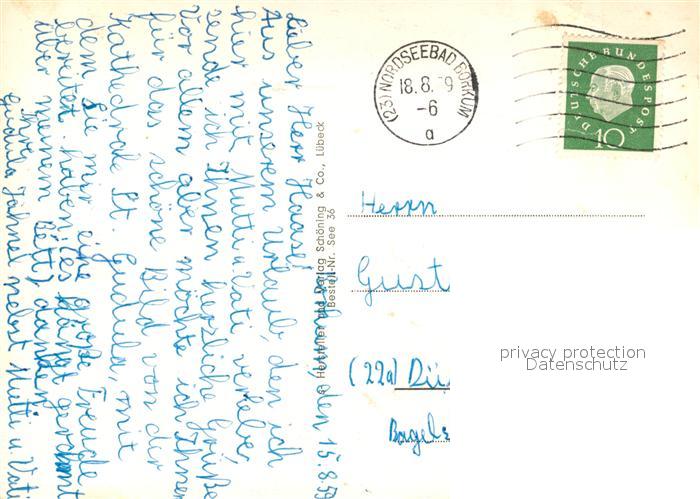 Borkum, den 15.8.59
Lieber Herr Haase!
Aus unserem Urlaub, den ich
hier mit Mutti u. Vati verlebe,
sende ich Ihnen herzliche Grüße.
Vor allem aber möchte ich Ihnen
für das schöne Bild von der
Kathedrale St. Gudula, mit
dem Sie mir eine große Freude
bereitet haben (es hängt gerahmt
über meinem Bett), danken.
Ihre
Gudula Jähnel nebst Mutti u. Vati
Hersteller und Verlag Schöning & Co., Lübeck
Bestell-Nr. See 36
(23) NORDSEEBAD BORKUM
18.8.59
-6
a
DEUTSCHE BUNDESPOST
10
Herrn
Gust
(22a) Dü
Bagels
privacy protection
Datenschutz